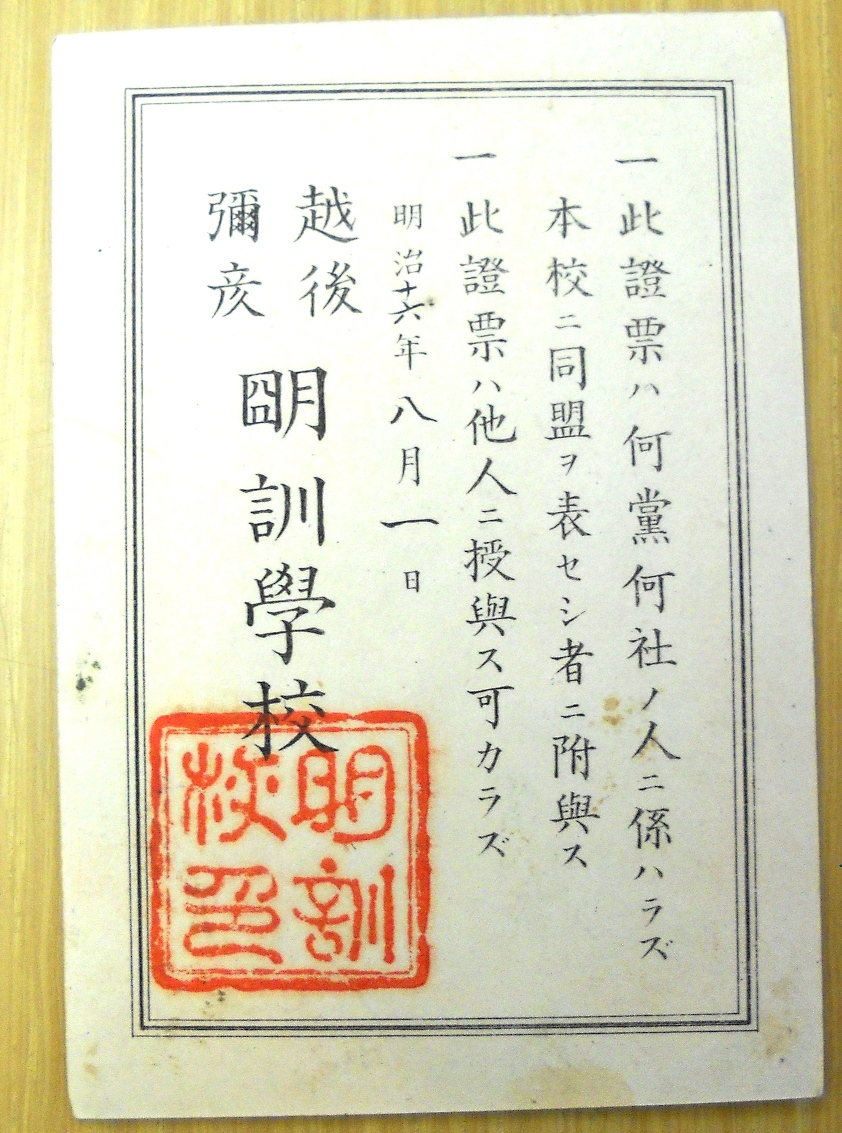 一此證票ハ何黨何社ノ人ニ係ハラズ
本校ニ同盟ヲ表セシ者ニ附與ス
一此證票ハ他人ニ授與ス可カラズ
明治十六年八月一日
越後
彌彦
明訓學校
明訓
校印